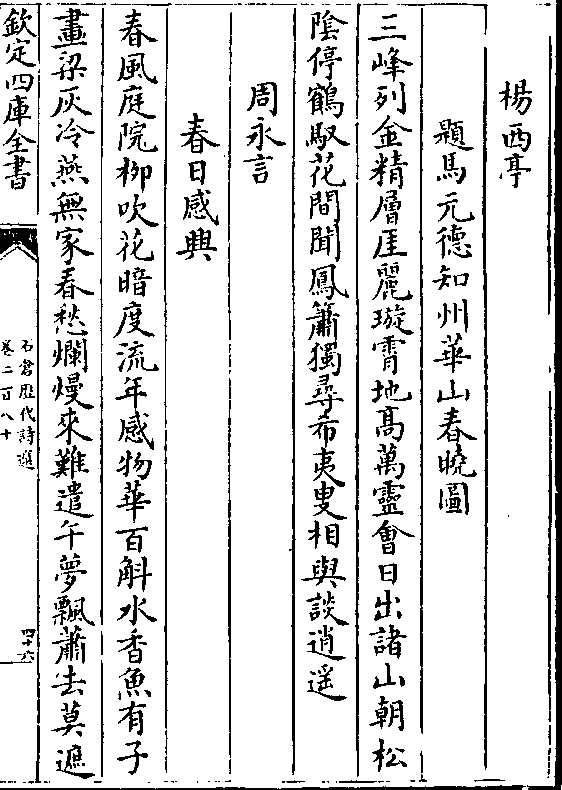 楊西亭
題馬元德知州華山春曉圖
三峰列金精層厓麗璇霄地髙萬靈會日出諸山朝松
隂停鶴馭花間聞鳳簫獨尋希夷叟相與談逍遥
周永言
春日感興
春風庭院栁吹花暗度流年感物華百斛水香魚有子
畫梁灰冷燕無家春愁爛熳來難遣午夢飄蕭去莫遮
欽定四庫全書
石倉歴代詩選
卷二百八十
四十六